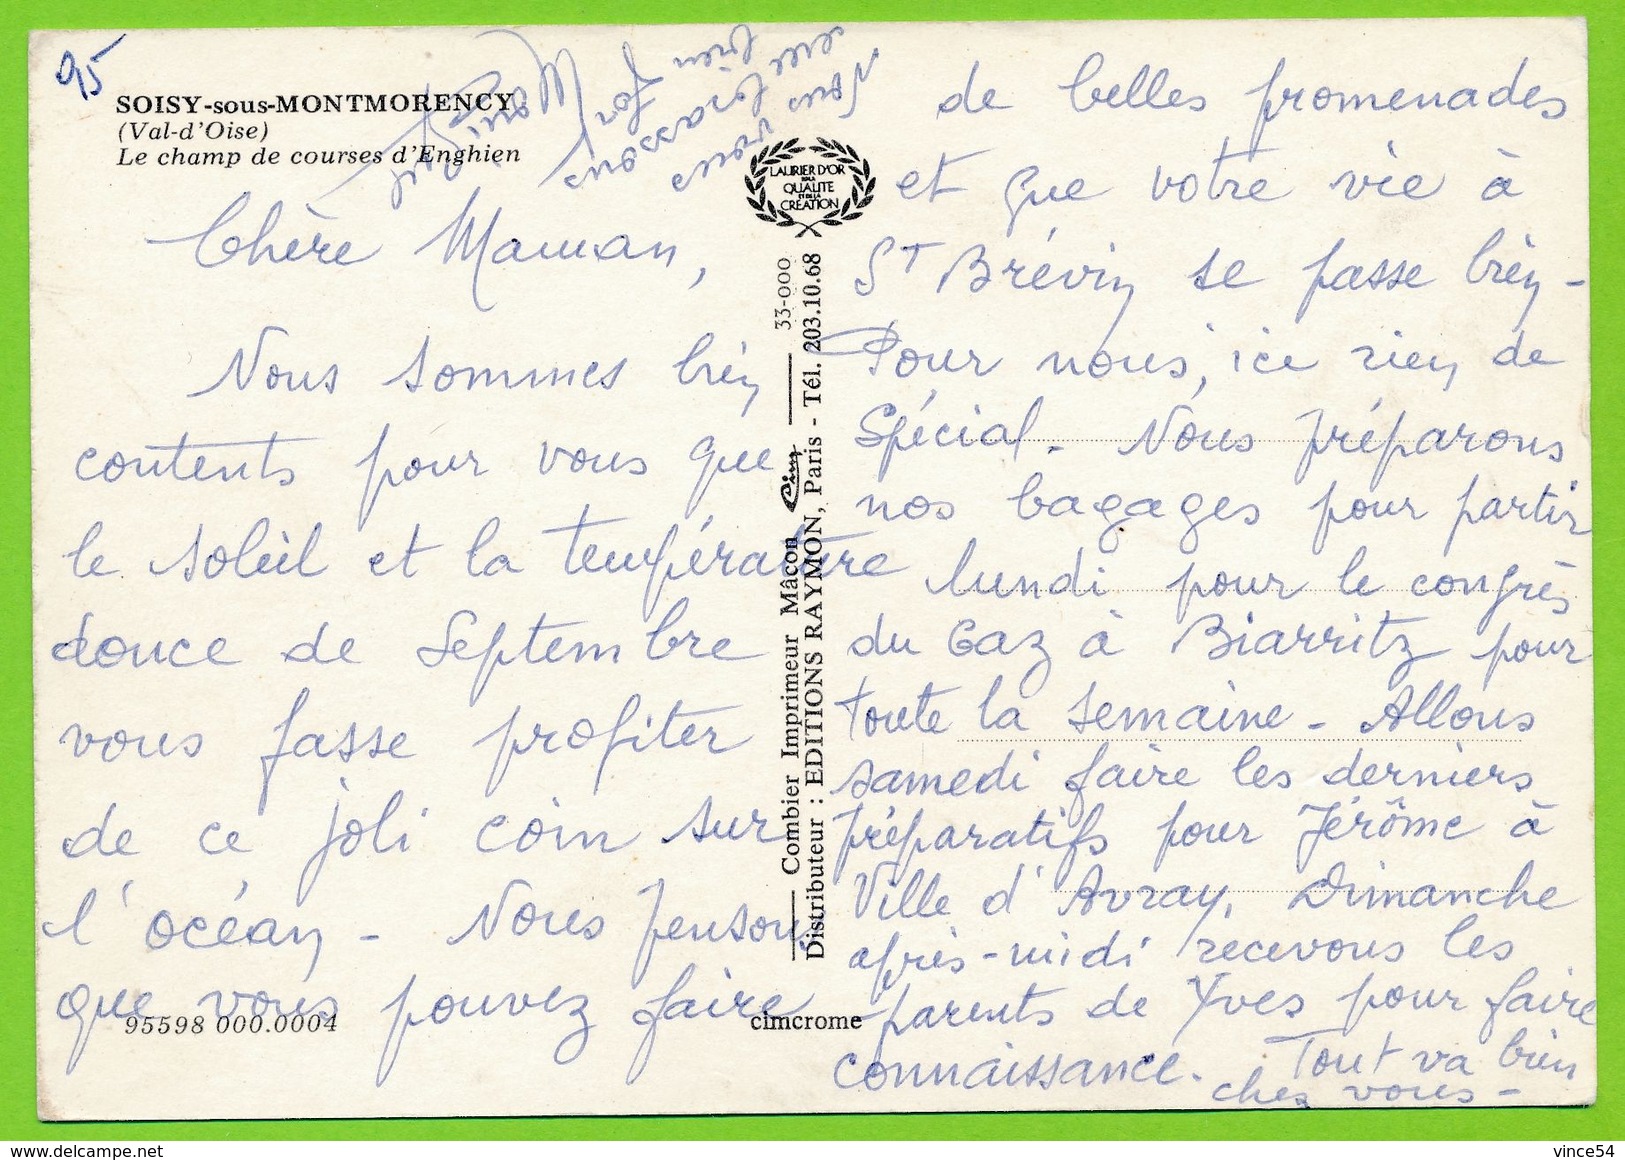 95
SOISY-sous-MONTMORENCY
(Val-d'Oise)
Le champ de courses d'Enghien
Chère Maman,
Nous sommes bien
contents pour vous que
le soleil et la température
douce de Septembre
vous fasse profiter
de ce joli coin sur
l'océan - Nous pensons
que vous pouvez faire
95598 000.0004
LAURIER D'OR
DE LA
QUALITE
ET DE LA
CREATION
33-000
Combier Imprimeur Mâcon Cim
Distributeur : EDITIONS RAYMON, Paris - Tél. 203.10.68
cimcrome
de belles promenades
et que votre vie à
St Brévin se passe bien -
Pour nous, ici rien de
spécial - Nous préparons
nos bagages pour partir
lundi pour le congrès
du Gaz à Biarritz pour
toute la semaine - Allons
samedi faire les derniers
préparatifs pour Jérôme à
Ville d'Avray. Dimanche
après-midi recevons les
parents de Yves pour faire
connaissance. Tout va bien
chez vous -
Nous
vous
embrassons
bien fort